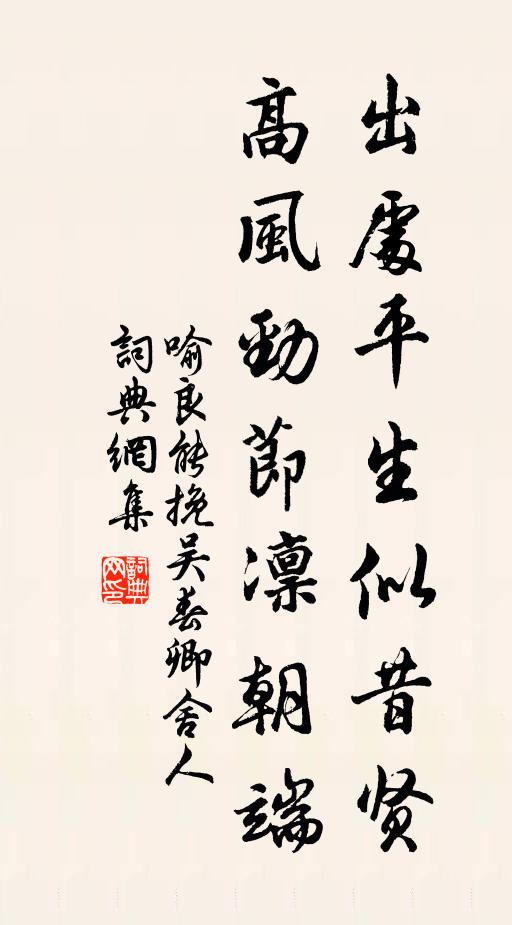 出處平生似昔贤
高風勁節凛朝端
喻良能挽吴春卿舍人
詞典網集
詞典网印